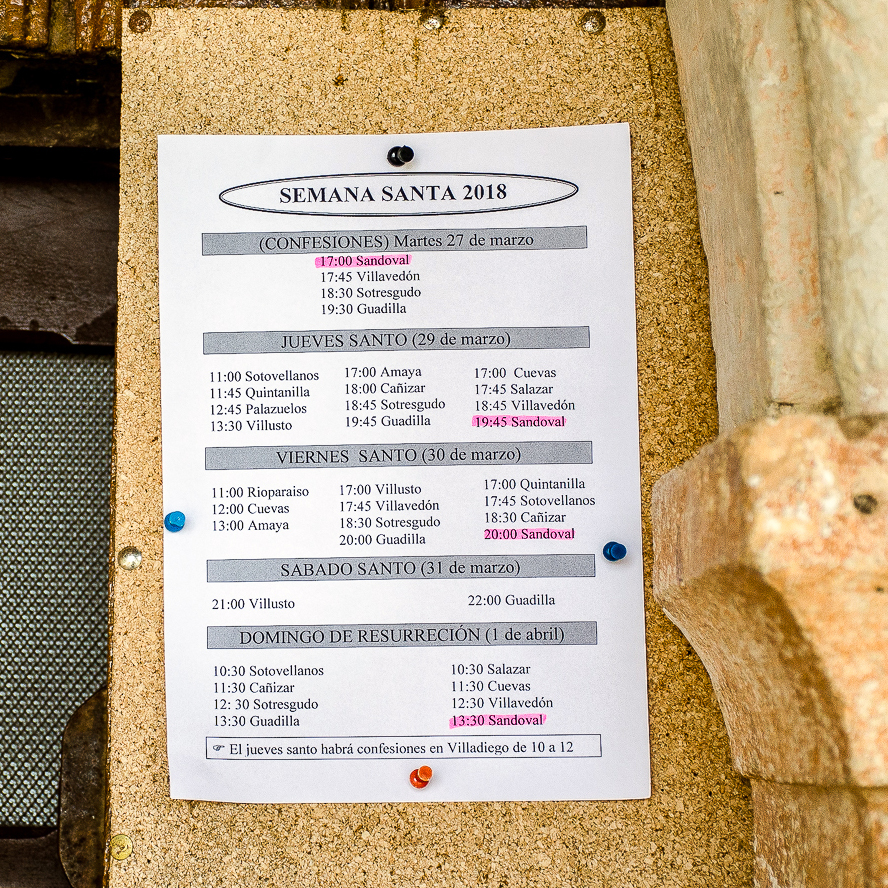 SEMANA SANTA 2018
(CONFESIONES) Martes 27 de marzo
17:00 Sandoval
17:45 Villavedón
18:30 Sotresgudo
19:30 Guadilla
JUEVES SANTO (29 de marzo)
11:00 Sotovellanos
11:45 Quintanilla
12:45 Palazuelos
13:30 Villusto
17:00 Amaya
18:00 Cañizar
18:45 Sotresgudo
19:45 Guadilla
17:00 Cuevas
17:45 Salazar
18:45 Villavedón
19:45 Sandoval
VIERNES SANTO (30 de marzo)
11:00 Rioparaiso
12:00 Cuevas
13:00 Amaya
17:00 Villusto
17:45 Villavedón
18:30 Sotresgudo
20:00 Guadilla
17:00 Quintanilla
17:45 Sotovellanos
18:30 Cañizar
20:00 Sandoval
SABADO SANTO (31 de marzo)
21:00 Villusto
22:00 Guadilla
DOMINGO DE RESURRECIÓN (1 de abril)
10:30 Sotovellanos
11:30 Cañizar
12: 30 Sotresgudo
13:30 Guadilla
10:30 Salazar
11:30 Cuevas
12:30 Villavedón
13:30 Sandoval
☞ El jueves santo habrá confesiones en Villadiego de 10 a 12